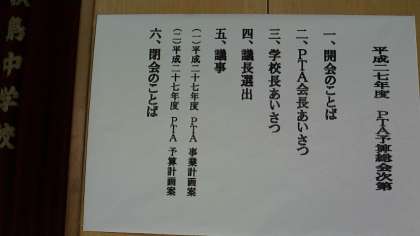 平成二七年度　PTA予算総会次第
一、開会のことば
二、PTA会長あいさつ
三、学校長あいさつ
四、議長選出
五、議事
（一）平成二十七年度　PTA　事業計画案
（二）平成二十七年度　PTA　予算計画案
六、閉会のことば
島中学校